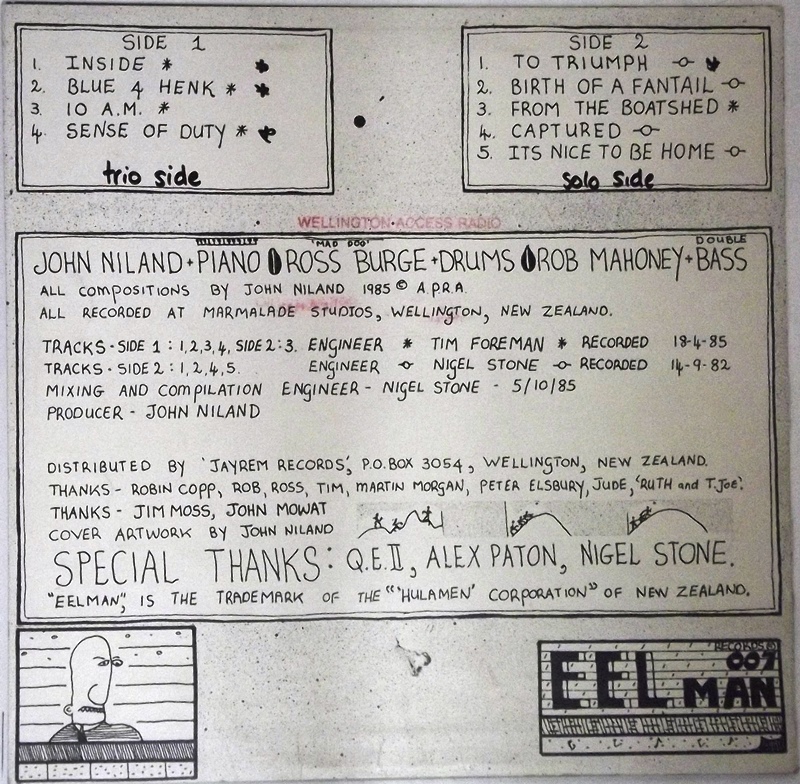 SIDE 1
1. INSIDE *
2. BLUE 4 HENK *
3. 10 A.M. *
4. SENSE OF DUTY *
trio side
SIDE 2
1. TO TRIUMPH -o-
2. BIRTH OF A FANTAIL -o-
3. FROM THE BOATSHED *
4. CAPTURED -o-
5. ITS NICE TO BE HOME -o-
solo side
WELLINGTON ACCESS RADIO
"MAD DOG" DOUBLE
JOHN NILAND + PIANO ROSS BURGE + DRUMS ROB MAHONEY + BASS
ALL COMPOSITIONS BY JOHN NILAND 1985 © A.P.R.A.
ALL RECORDED AT MARMALADE STUDIOS, WELLINGTON, NEW ZEALAND.
TRACKS - SIDE 1 : 1,2,3,4, SIDE 2 : 3. ENGINEER * TIM FOREMAN * RECORDED 18-4-85
TRACKS - SIDE 2 : 1,2,4,5. ENGINEER -o- NIGEL STONE -o- RECORDED 14-9-82
MIXING AND COMPILATION ENGINEER - NIGEL STONE - 5/10/85
PRODUCER - JOHN NILAND
DISTRIBUTED BY 'JAYREM RECORDS', P.O. BOX 3054, WELLINGTON, NEW ZEALAND.
THANKS - ROBIN COPP, ROB, ROSS, TIM, MARTIN MORGAN, PETER ELSBURY, JUDE, 'RUTH and T.Joe'.
THANKS - JIM MOSS, JOHN MOWAT
COVER ARTWORK BY JOHN NILAND
SPECIAL THANKS: Q.E.II, ALEX PATON, NIGEL STONE.
"EELMAN", IS THE TRADEMARK OF THE "'HULAMEN' CORPORATION" OF NEW ZEALAND.
RECORDS ©
007
EEL MAN